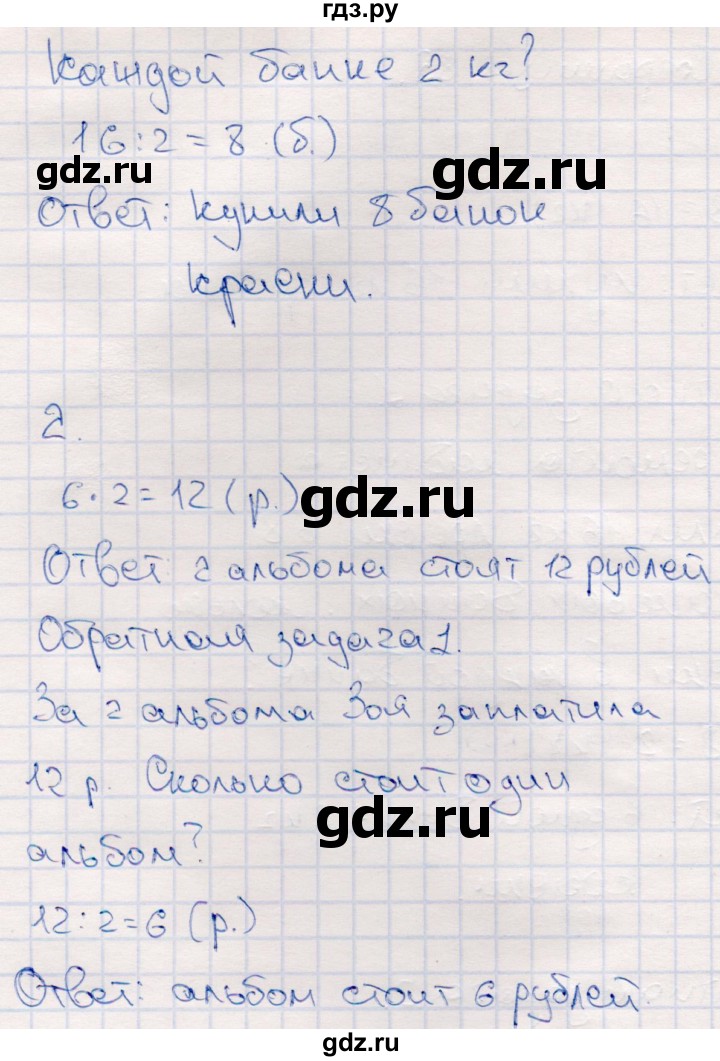 гдз.ру
каждой банке 2 кг?
16:2=8 (б.)
gdz.ru
gdz.ru
Ответ: купили 8 банок
краски.
2.
6·2=12 (р.)
gdz.ru
Ответ 2 альбома стоят 12 рублей
Обратная задача 1.
За 2 альбома Зоя заплатила
12 р. Сколько стоит один
gdz.ru
альбом?
12:2=6 (р.)
Ответ: альбом стоит 6 рублей.
gdz.ru